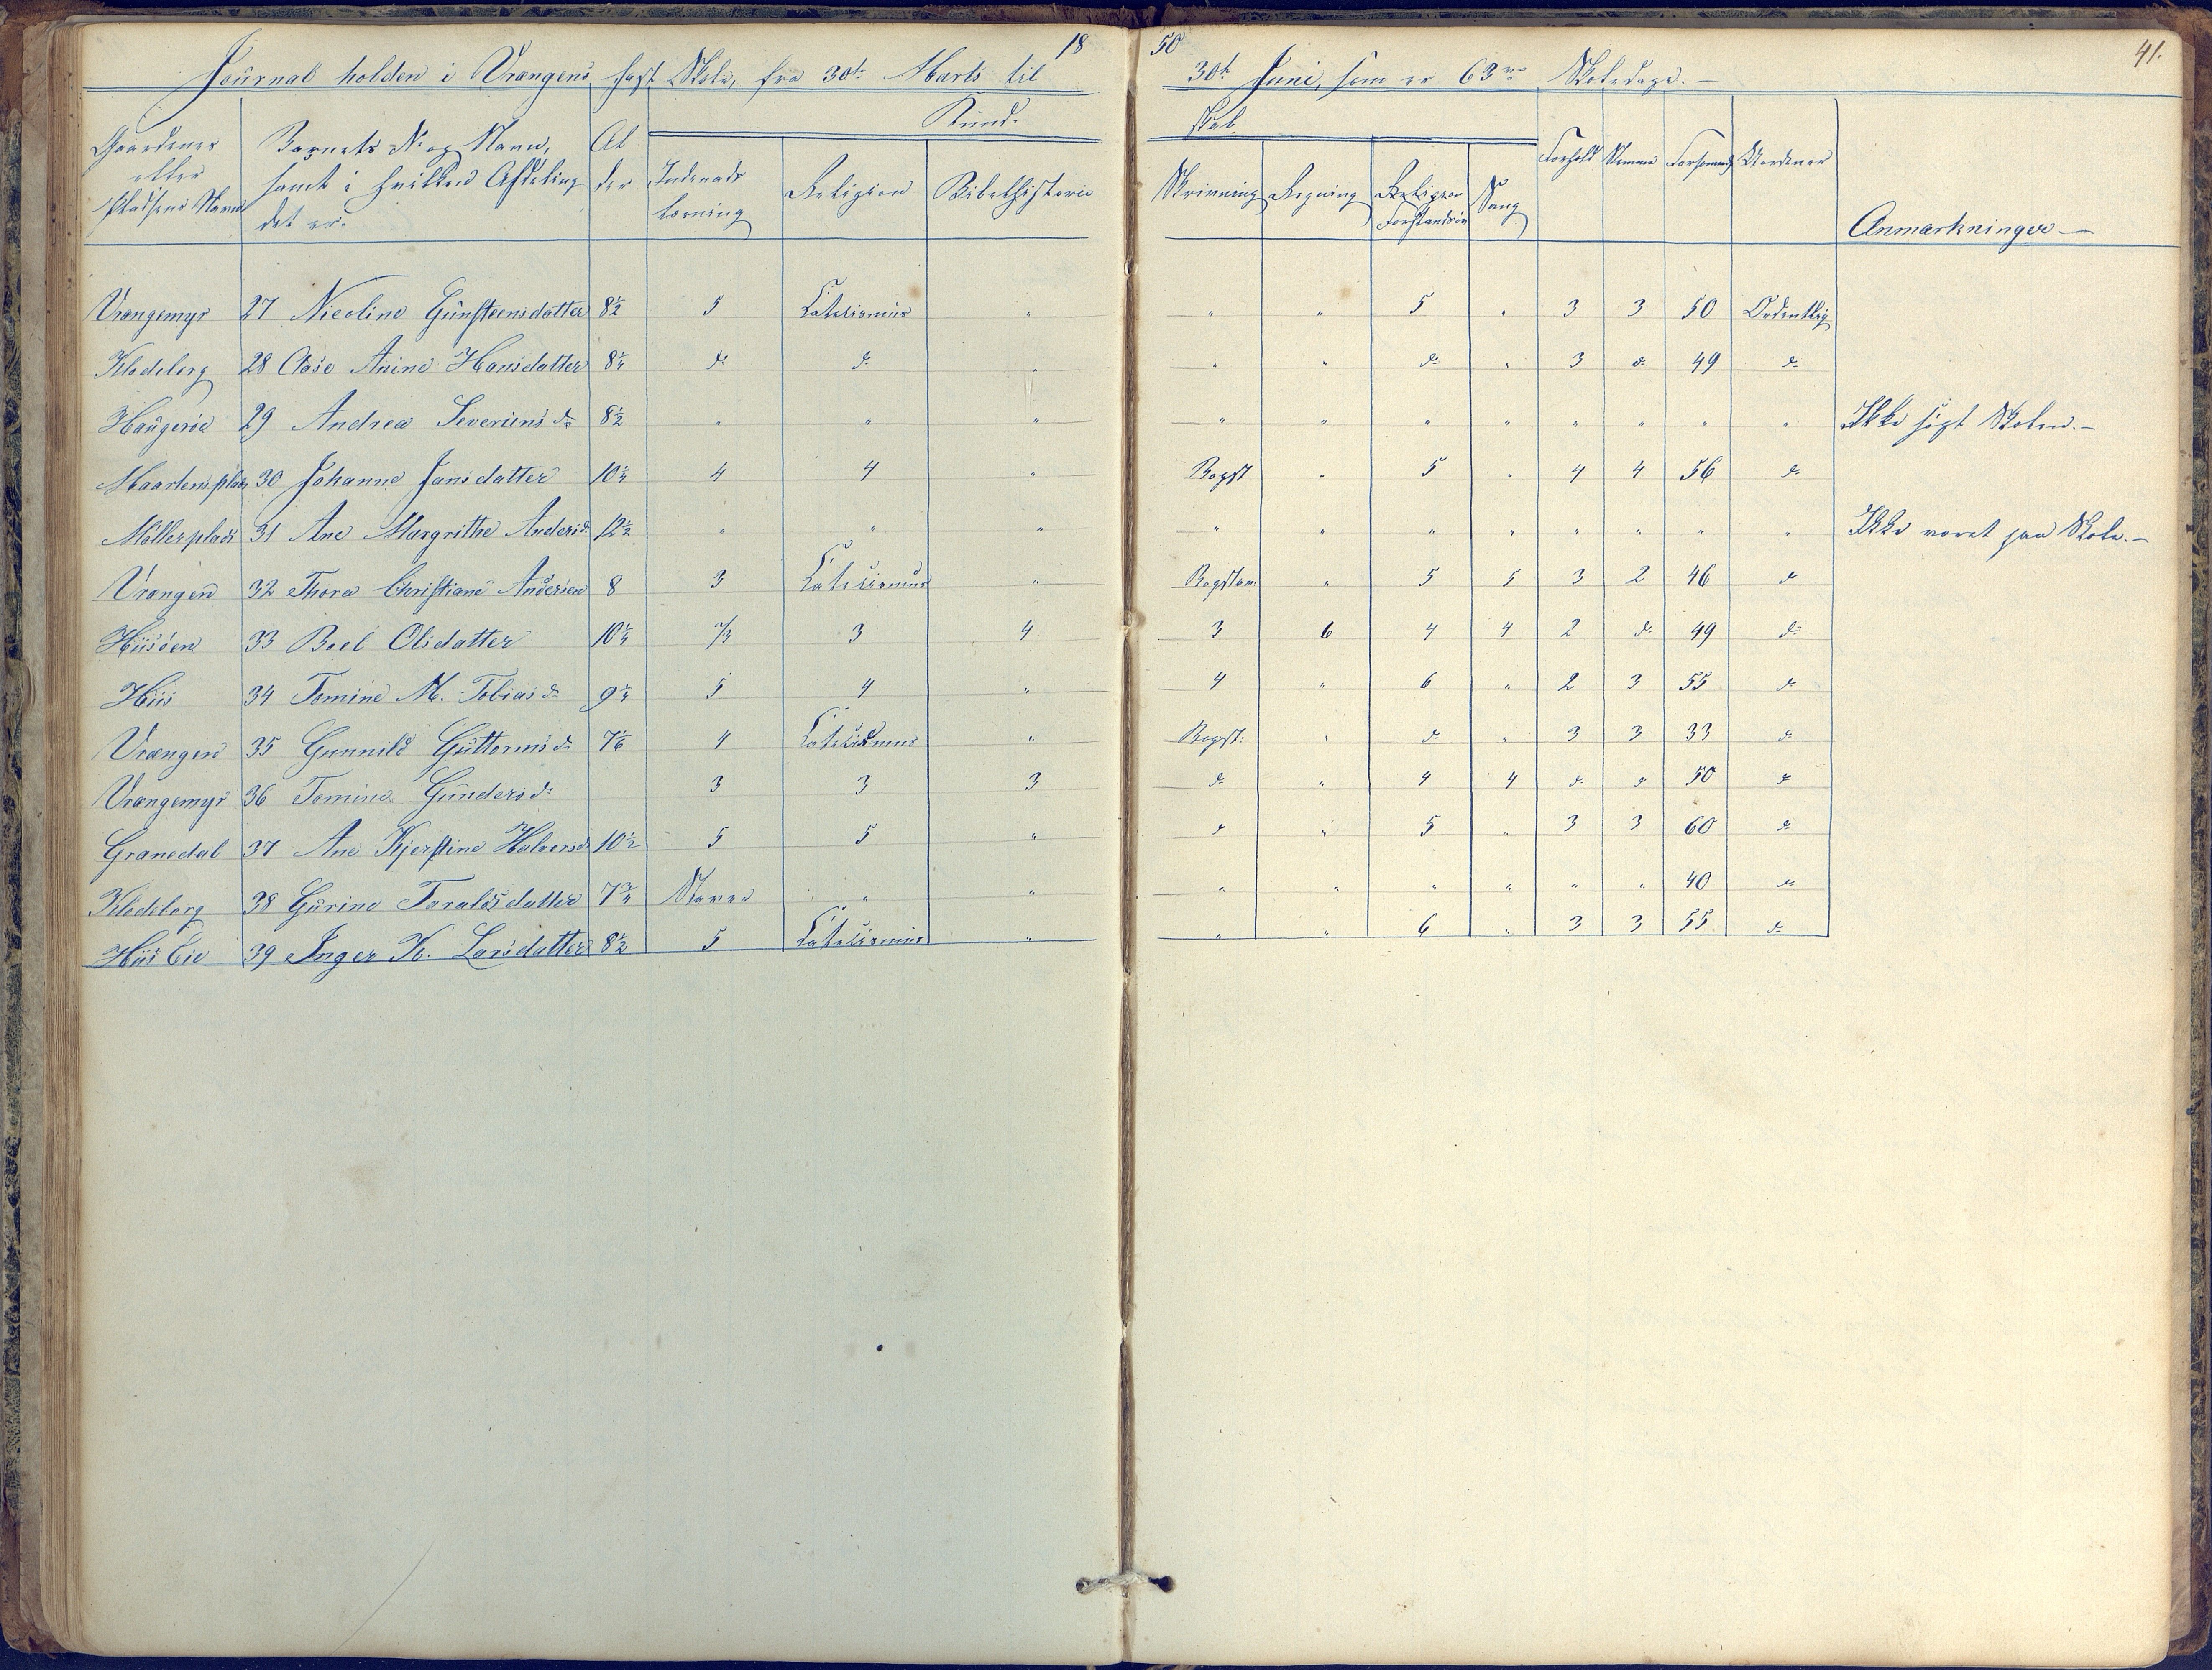 18 50 41.
Journal holden i Vrængens fast Skole, fra 30te Marts til 30te Juni, som er 63 Skoledage.—
Kund- skab
Gaardenes eller Pladsens Navn
Barnets No og Navn, samt i hvilken Afdeling det er.
Alder
Indenads Læsning
Religion
Bibelhistorie
Skrivning
Regning
Religion Forstandsøv
Sang
Forhold
Nemme
Forsømmelse
Anmærkninger.—
Vrangemyr 27 Nicoline Gunsteensdatter 8½ 5 Catecismus " " " 5 " 3 3 50 Ordentlig
Klodeberg 28 Aase Anine Hansdatter 8¼ do do " " " do " 3 do 49 do
Haugerød 29 Andrea Severins d. 8½ " " " " " " " " " " " Ikke søgt Skolen.—
Maartensplads 30 Johanne Jansdatter 10¼ 4 4 " Bogst " 5 " 4 4 56 do
Møllerplads 31 Ane Margrithe Andersd. 12½ " " " " " " " " " " " Ikke været paa Skole.—
Vrængen 32 Thora Christiane Andersen 8 3 Catecismus " Bogstav. " 5 5 3 2 46 do
Hiisøen 33 Boel Olsdatter 10¼ 2/3 3 4 3 6 4 4 2 do 49 do
Hiis 34 Tomine M. Tobias d. 9¼ 5 4 " 4 " 6 " 2 3 55 do
Vrængen 35 Gunnild Guttorms d. 7⅙ 4 Catecismus " Bogst: " do " 3 3 33 do
Vrangemyr 36 Tomine Gunders d. 3 3 3 do " 4 4 do do 50 do
Granedal 37 Ane Kjerstine Halvorsd. 10½ 5 5 " do " 5 " 3 3 60 do
Klodeberg 38 Gurine Taraldsdatter 7¾ Staver " " " " " " " " 40 do
Hiis Eie 39 Inger K. Larsdatter 8½ 5 Catecismus " " " 6 " 3 3 55 do